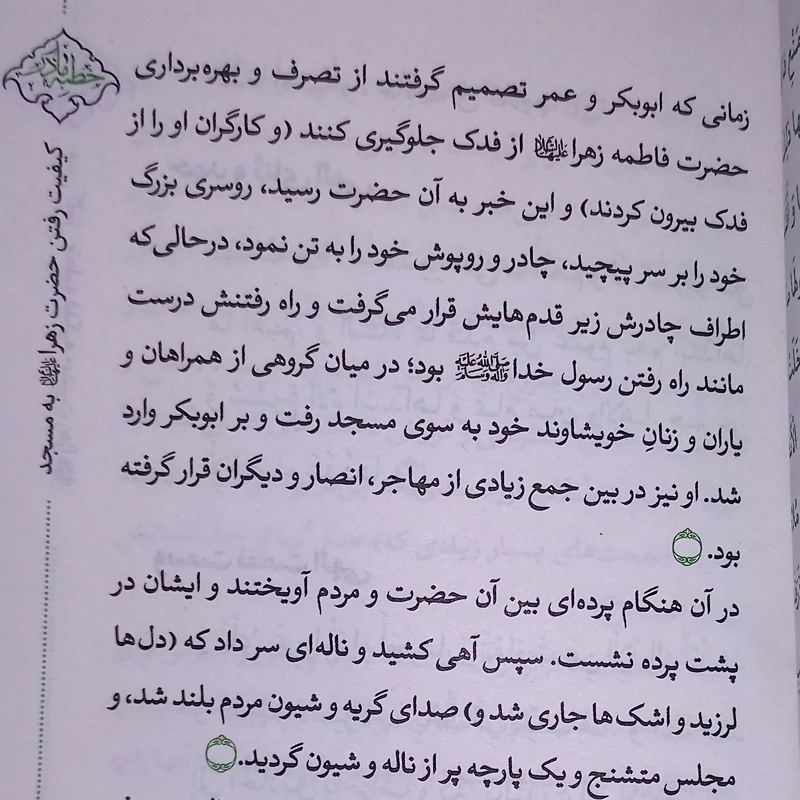 زمانی که ابوبکر و عمر تصمیم گرفتند از تصرف و بهره‌برداری
حضرت فاطمه زهرا علیها السلام از فدک جلوگیری کنند (و کارگران او را از
فدک بیرون کردند) و این خبر به آن حضرت رسید، روسری بزرگ
خود را بر سر پیچید، چادر و روپوش خود را به تن نمود، درحالی‌که
اطراف چادرش زیر قدم‌هایش قرار می‌گرفت و راه رفتنش درست
مانند راه رفتن رسول خدا صلی الله علیه و آله وسلم بود؛ در میان گروهی از همراهان و
یاران و زنانِ خویشاوند خود به سوی مسجد رفت و بر ابوبکر وارد
شد. او نیز در بین جمع زیادی از مهاجر، انصار و دیگران قرار گرفته
بود.
در آن هنگام پرده‌ای بین آن حضرت و مردم آویختند و ایشان در
پشت پرده نشست. سپس آهی کشید و ناله‌ای سر داد که (دل‌ها
لرزید و اشک‌ها جاری شد و) صدای گریه و شیون مردم بلند شد، و
مجلس متشنج و یک پارچه پر از ناله و شیون گردید.
خطبه فدک
کیفیت رفتن حضرت زهرا علیها السلام به مسجد